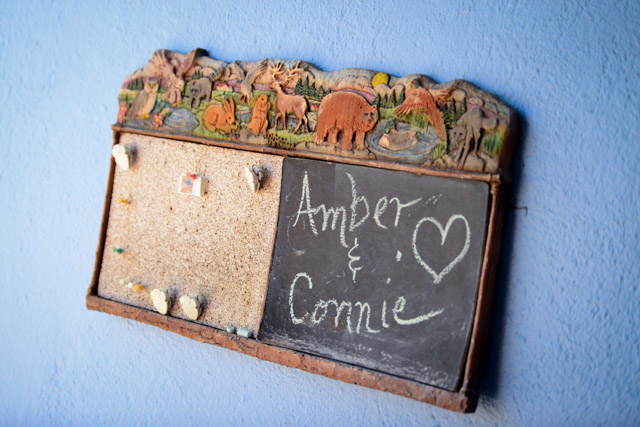 Amber
&
Connie